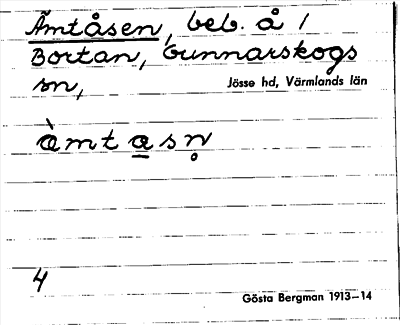 Ämtåsen, beb. å 1
Bortan, Gunnarskogs
sn,
Jösse hd, Värmlands län
àmta̲sn̥
4
Gösta Bergman 1913–14